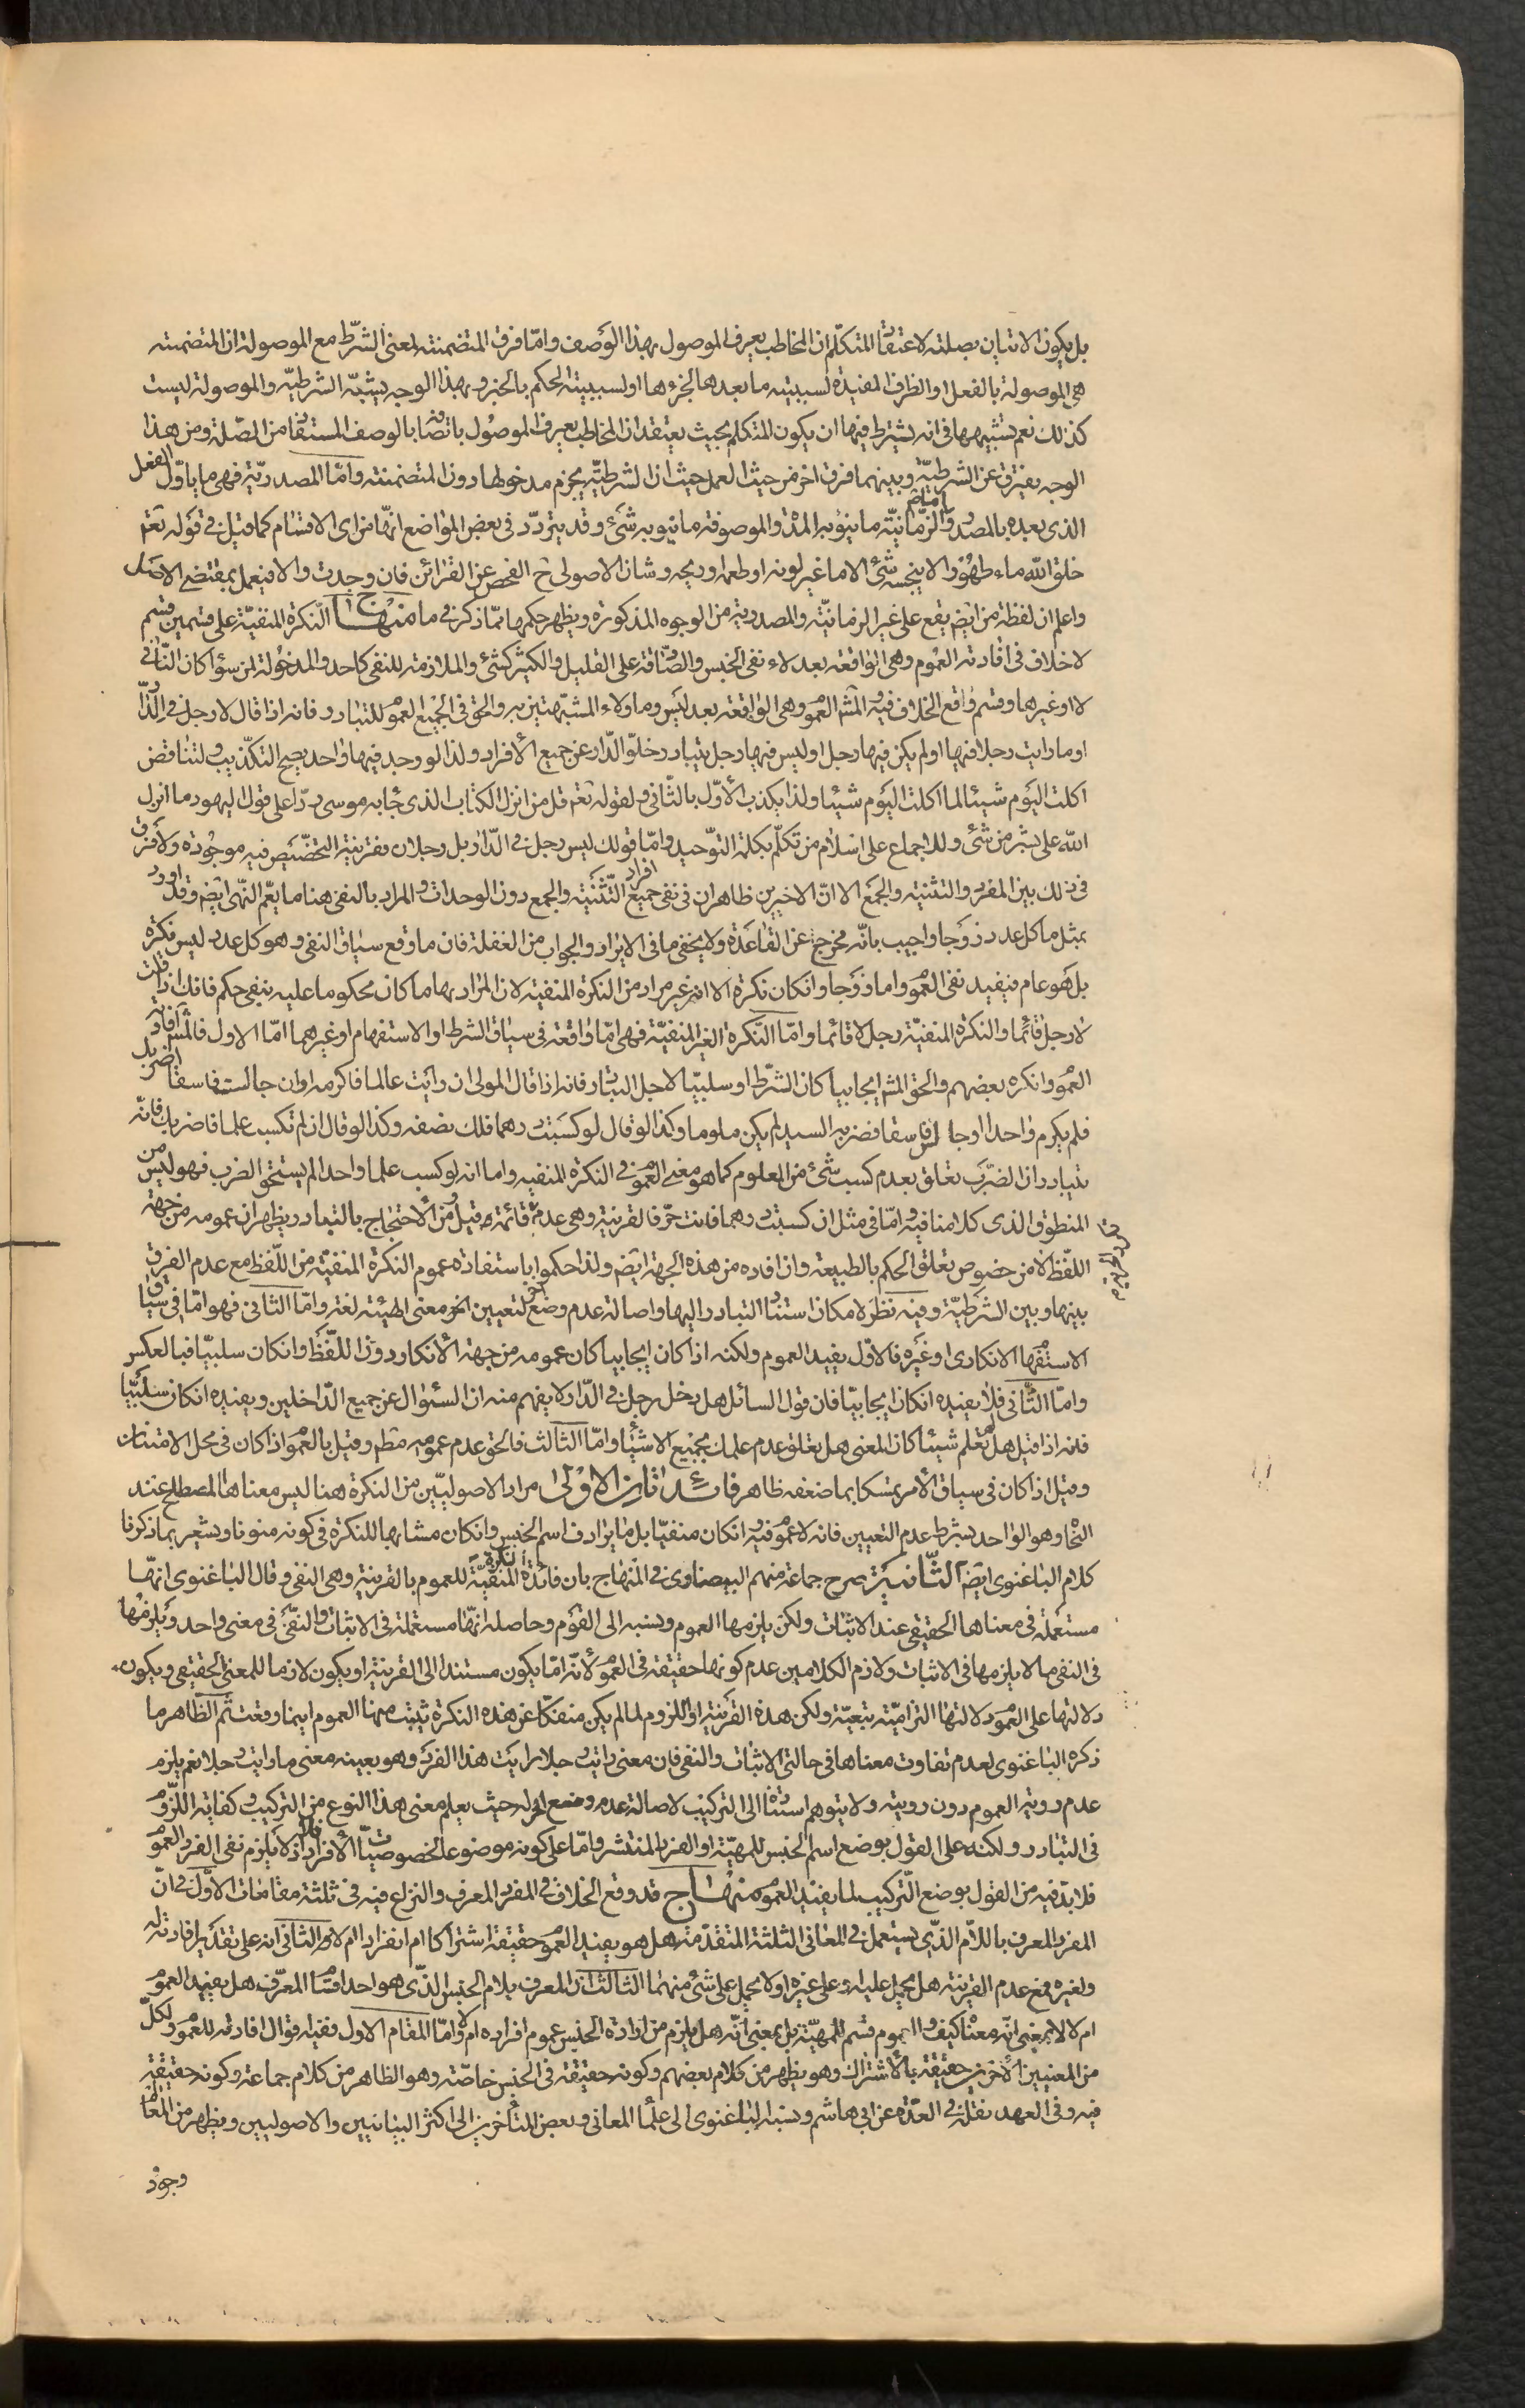 بل يكون الاتيان بصلته لاعتقاد المتكلم ان المخاطب يعرف الموصول بهذا الوصف واما فرق المتضمنته لمعنى الشرط مع الموصولة ان المتضمنته
هى الموصولة بالفعل او الظرف المفيدة لسببيته ما بعدها لجزءها او لسببيته الحكم بالخبر وبهذا الوجه يشبه الشرطية والموصولة ليست
كذلك نعم تشبيهها فى انه يشترط فيها ان يكون المتكلم بحيث يعتقد ان المخاطب يعرف الموصول باتصافه بالوصف المستفاد من الصلة ومن هذا
الوجه يفترق عن الشرطية وبينهما فرق اخر من حيث العمل حيث ان الشرطية يجزم مدخولها دون المتضمنته واما المصدرية فهى ما ياول الفعل
الذى بعده بالمصدر والزمانية ما ينوبه المدة والموصوفة ما ينوبه شئ وقد يتردد فى بعض المواضع انها من اى الاقسام كما قيل فى قوله تعم
خلق الله ماء طهورا لا ينجسه شئ الا ما غير لونه او طعمه او ريحه وشان الاصولى ح الفحص عن القرائن فان وجدت والا فيعمل بمقتضى الاصل
واعلم ان لفظة من ايضم يقع على غير الزمانية والمصدرية من الوجوه المذكورة ويظهر حكمها مما ذكر فى ما منهاج النكرة المنفية على قسمين قسم
لا خلاف فى افادته العموم وهى الواقعة بعد لاء نفى الجنس والصادقة على القليل والكثير كشئ والملازمة للنفى كاحد والمدخولة لمن سواء كان النافى
لا او غيرها وقسم واقع الخلاف فيه والمشه العموم وهى الواقعة بعد ليس وما ولاء المشبهتين به والحق فى الجميع العموم للتبادر فانه اذا قال لا رجل فى الدار
او ما رايت رجلا فيها او لم يكن فيها رجل او ليس فيها رجل يتبادر خلو الدار عن جميع الافراد ولذا لو وجد فيها واحد يصح التكذيب ولتناقض
اكلت اليوم شيئا لما اكلت اليوم شيئا ولذا يكذب الاول بالثانى ولقوله تعم قل من انزل الكتاب الذى جاء به موسى ردا على قول اليهود ما انزل
الله على بشر من شئ وللاجماع على اسلام من تكلم بكلمة التوحيد واما قولك ليس رجل فى الدار بل رجلان بقرينة التخصيص فيه موجودة ولا فرق
فى ذلك بين المفرد والتثنية والجمع الا ان الاخيرين ظاهران فى نفى جميع افراد التثنية والجمع دون الوحدات والمراد بالنفى هنا ما يعم النهى ايضم وقد اورد
بمثل ما كل عدد زوجا واجيب بانه مخرج عن القاعدة ولا يخفى ما فى الايراد والجواب من الغفلة فان ما وقع سياق النفى وهو كل عدد ليس نكرة
بل هو عام فيفيد نفى العموم واما زوجا وانكان نكرة الا انه غير مراد من النكرة المنفية لان المراد بها ما كان محكوما عليه بنفى حكم فانك اذا قلت
لا رجل قائما والنكرة المنفية رجل لا قائما واما النكرة الغير المنفية فهى اما واقعة فى سياق الشرط او الاستفهام او غيرهما اما الاول فالمش افادته
العموم وانكره بعضهم والحق المشه ايجابيا كان الشرط او سلبيا لاجل التبادر فانه اذا قال المولى ان رايت عالما فاكرمه او ان جالست فاسقا اضربك
فلم يكرم واحدا او جالس فاسقا فضربه السيد لم يكن ملوما وكذا لو قال لو كسبت درهما فلك نصفه وكذا لو قال ان لم تكسب علما فاضربك فانه
يتبادر ان الضرب تعلق بعدم كسب شئ من العلوم كما هو معنى العموم فى النكرة المنفيه واما انه لو كسب علما واحدا لم يستحق الضرب فهو ليس من
المنطوق الذى كلامنا فيه واما فى مثل ان كسبت درهما فانت حر فالقرينة وهى عدم قائمة قيل ومن الاحتجاج بالتبادر يظهر ان عمومه من جهة
اللفظ لا من خصوص تعلق الحكم بالطبيعة وان افاده من هذه الجهة ايضم ولذا حكموا باستفادة عموم النكرة المنفية من اللفظ مع عدم الفرق
بينها وبين الشرطية وفيه نظر لامكان استناد التبادر اليها واصالة عدم وضع اخر لتعيين معنى الهيئة لغة واما الثانى فهو اما فى سياق
الاستفهام الانكارى او غيره فالاول يفيد العموم ولكنه اذا كان ايجابيا كان عمومه من جهة الانكار دون اللفظ وانكان سلبيا فبالعكس
واما الثانى فلا يفيده انكان ايجابيا فان قول السائل هل دخل رجل فى الدار لا يفهم منه ان السئوال عن جميع الداخلين ويفيده انكان سلبيا
فانه اذا قيل هل لم تعلم شيئا كان المعنى هل تعلق عدم علمك بجميع الاشياء واما الثالث فالحق عدم عمومه مطم وقيل بالعموم اذا كان فى محل الامتنان
وقيل اذا كان فى سياق الامر تمسكا بما ضعفه ظاهر فائدتان الاولى مراد الاصوليين من النكرة هنا ليس معناها المصطلح عند
النحاة وهو الواحد بشرط عدم التعيين فانه لا عموم فيه وانكان منفيا بل ما يرادف اسم الجنس وانكان مشابها للنكرة فى كونه منونا ويشعر بما ذكرنا
كلام الباغنوى ايضم الثانية صرح جماعة منهم البيضاوى فى المنهاج بان فائدة النكرة المنفية للعموم بالقرينة وهى النفى وقال الباغنوى انها
مستعملة فى معناها الحقيقى عند الاثبات ولكن يلزمها العموم ونسبه الى القوم وحاصله انها مستعملة فى الاثبات والنفى فى معنى واحد ويلزمها
فى النفى ما لا يلزمها فى الاثبات ولازم الكلامين عدم كونها حقيقة فى العموم لانه اما يكون مستندا الى القرينة او يكون لازما للمعنى الحقيقى ويكون
دلالتها على العموم دلالتها التزامية تبعية ولكن هذه القرينة او اللزوم لما لم يكن منفكا عن هذه النكرة يثبت مهنا العموم اينما وقعت ثم الظاهر ما
ذكره الباغنوى لعدم تفاوت معناها فى حالتى الاثبات والنفى فان معنى رايت رجلا رايت هذا الفرد وهو بعينه معنى ما رايت رجلا نعم يلزم
عدم روية العموم دون روية ولا يتوهم استناده الى التركيب لاصالة عدم وضع اخر له حيث يعلم معنى هذا النوع من التركيب وكفاية اللزوم
فى التبادر ولكنه على القول بوضع اسم الجنس للمهية او الفرد المنتشر واما على كونه موضوعا لخصوصيات الافراد اذ لا يلزم نفى الفرد العموم
فلا بد فيه من القول بوضع التركيب لما يفيد العموم منهاج قد وقع الخلاف فى المفرد المعرف والنزاع فيه فى ثلثة مقامات الاول فى ان
المفرد المعرف باللام الذى يستعمل فى المعانى الثلثة المتقدمة هل هو يفيد العموم حقيقة اشتراكا ام انفرادا ام لا والثانى انه على تقدير افادته له
ولغيره فمع عدم القرينة هل يحمل عليه او على غيره او لا يحمل على شئ منهما الثالث ان المعرف بلام الجنس الذى هو احد اقسام المعرف هل يفيد العموم
ام لا لا بمعنى انه معناه كيف والعموم قسم للمهية بل بمعنى انه هل يلزم من ارادة الجنس عموم افراده ام لا واما المقام الاول ففيه اقوال افادته للعموم ولكل
من المعنيين الاخرين حقيقة بالاشتراك وهو يظهر من كلام بعضهم وكونه حقيقة فى الجنس خاصة وهو الظاهر من كلام جماعة وكونه حقيقة
فيه وفى العهد نقله فى العدة عن ابى هاشم ونسبه الباغنوى الى علماء المعانى وبعض المتاخرين الى اكثر البيانيين والاصوليين ويظهر من المعا
وجود